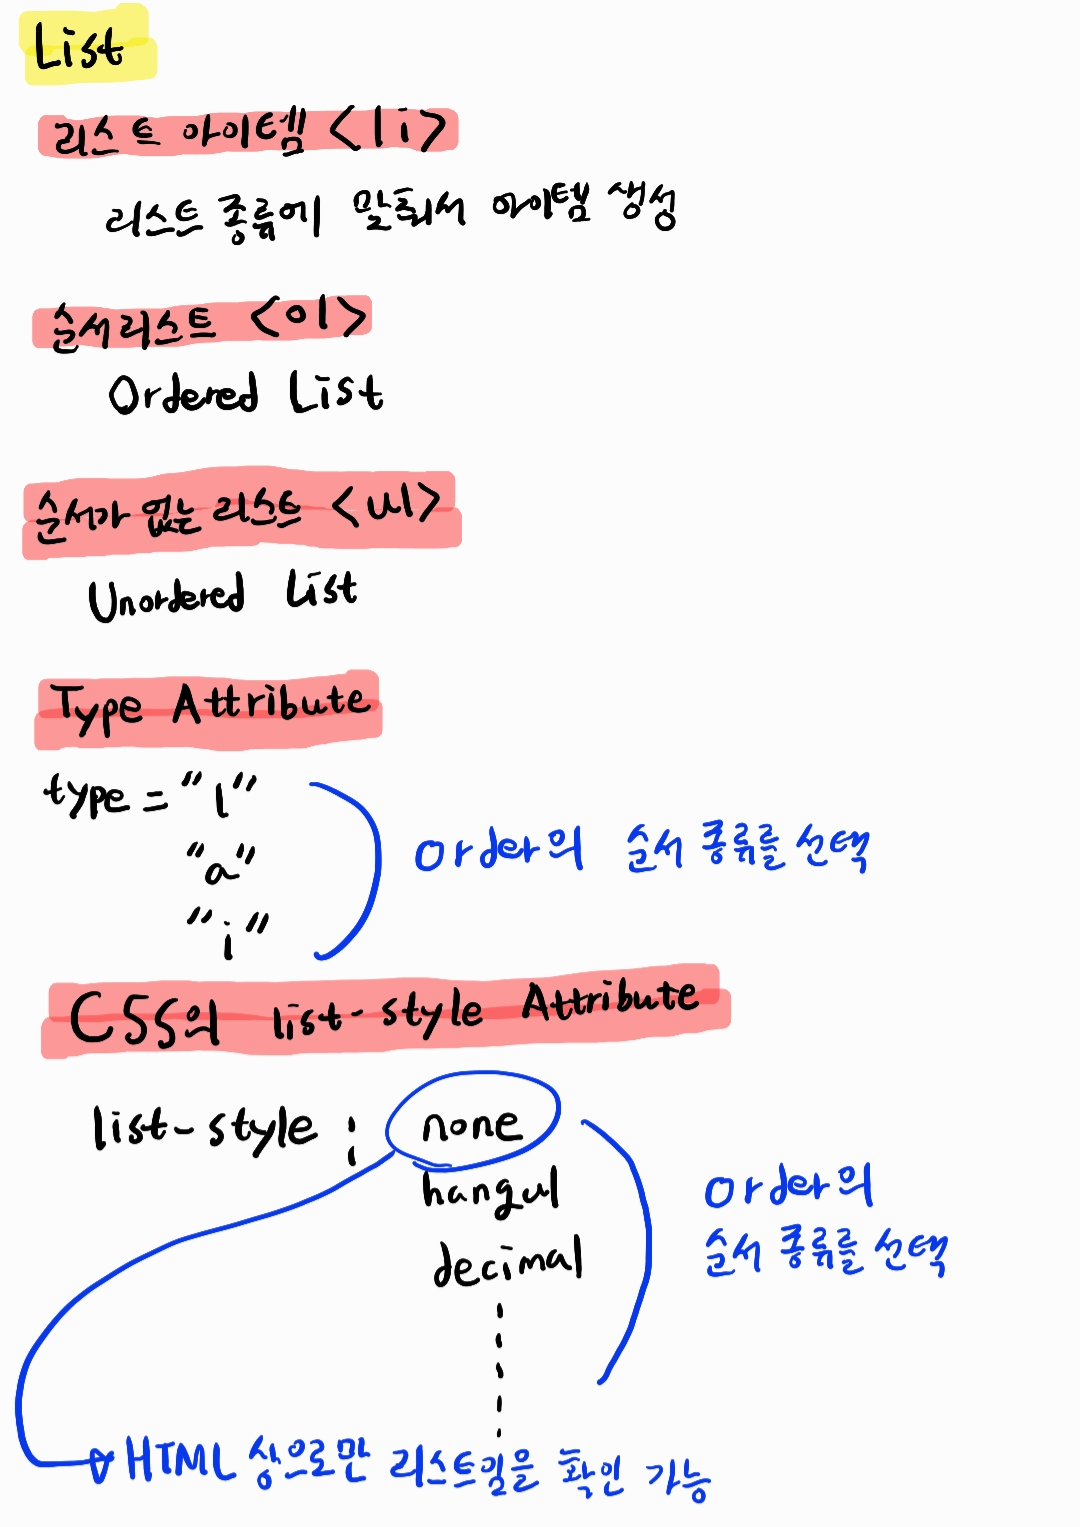 List
리스트 아이템 <li>
리스트 종류에 맞춰서 아이템 생성
순서리스트 <ol>
Ordered List
순서가 없는 리스트 <ul>
Unordered List
Type Attribute
type = "1"
"a"
"i"
order의 순서 종류를 선택
CSS의 list-style Attribute
list-style : none
hangul
decimal
order의
순서 종류를 선택
HTML 상으로만 리스트임을 확인 가능